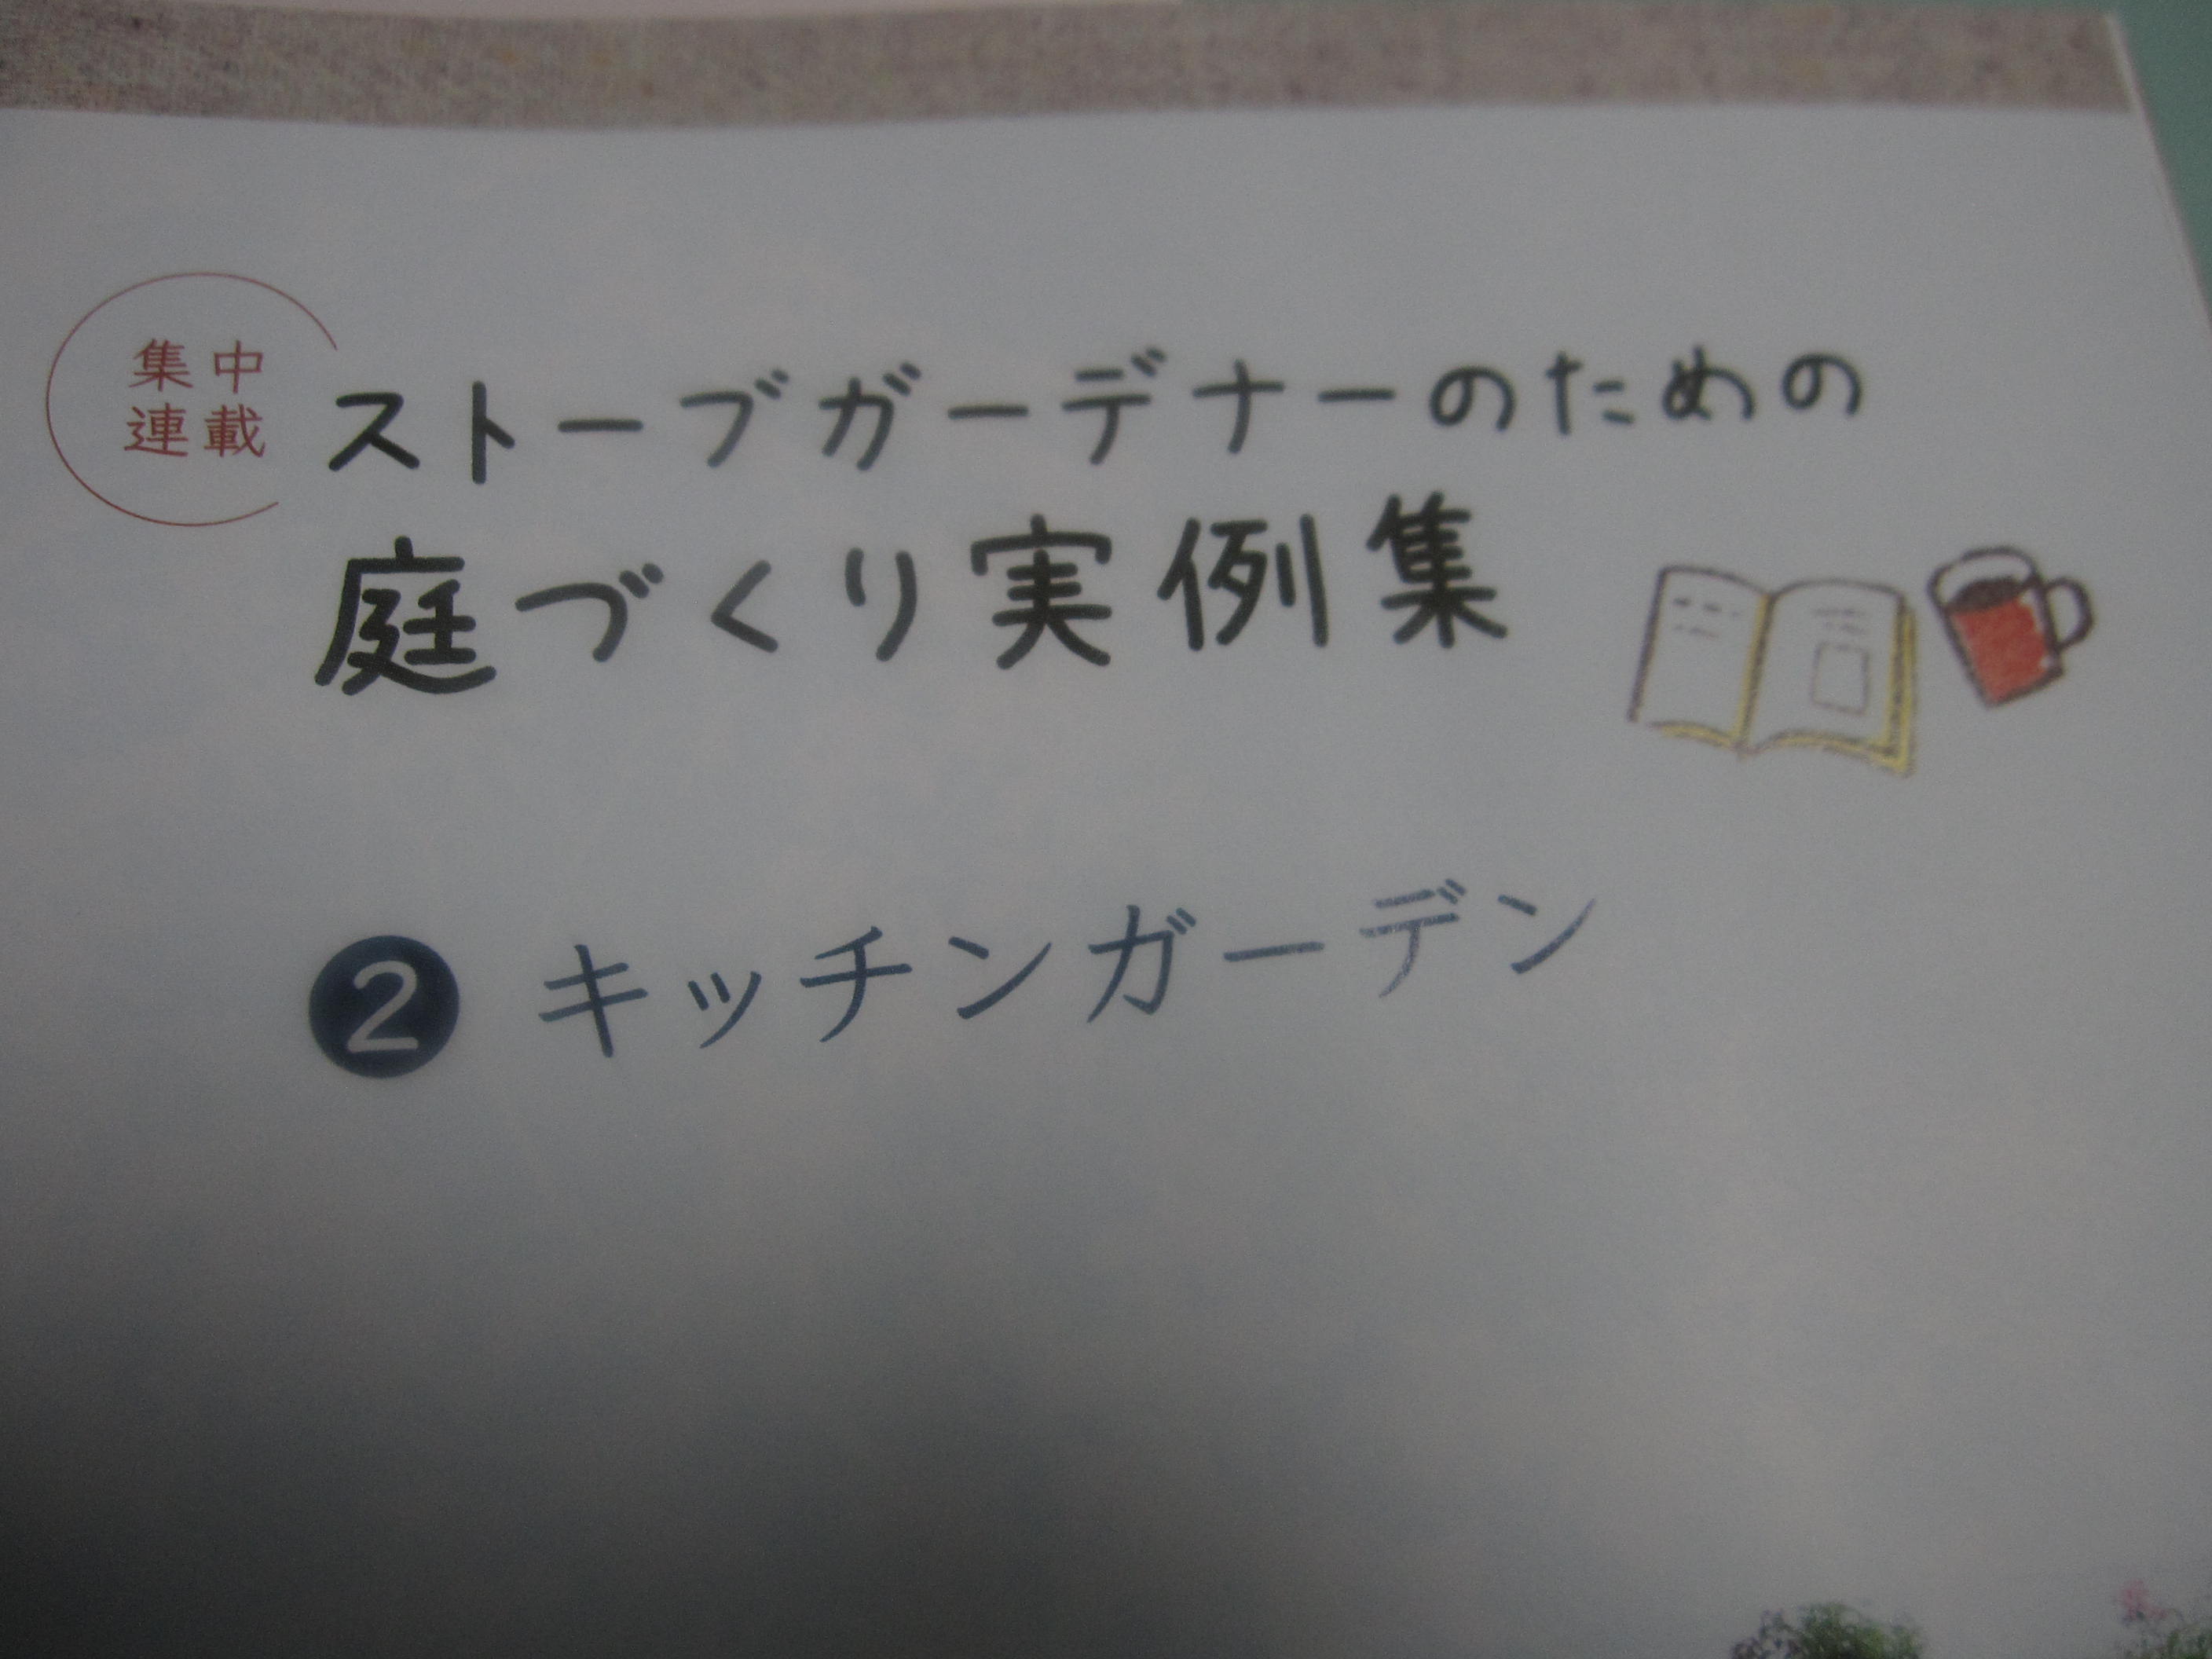 集中
連載
ストーブガーデナーのための
庭づくり実例集
2 キッチンガーデン